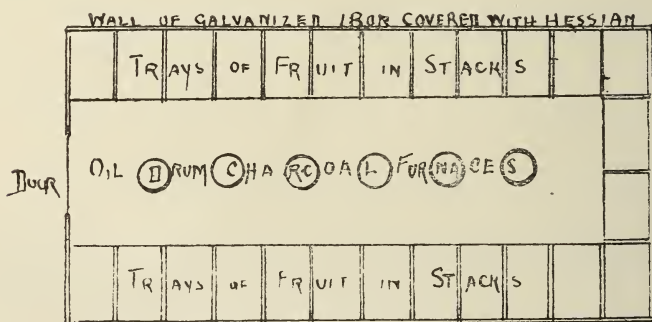 WALL OF GALVANIZED IRON COVERED WITH HESSIAN
TRAYS OF FRUIT IN STACKS
DOOR
OIL DRUM CHARCOAL FURNACES
TRAYS OF FRUIT IN STACKS